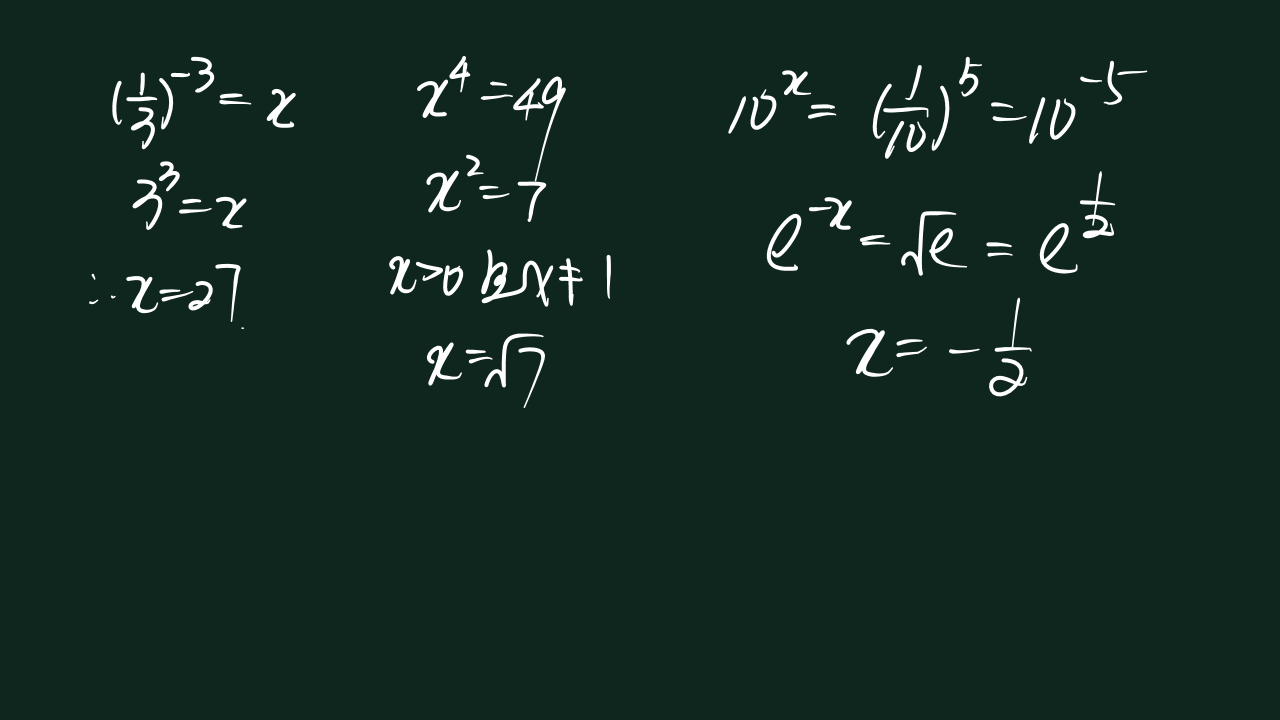 (1/3)^-3 = x
3^3 = x
∴ x = 27
x^4 = 49
x^2 = 7
x>0 且 x≠1
x = √7
10^x = (1/10)^5 = 10^-5
e^-x = √e = e^1/2
x = - 1/2